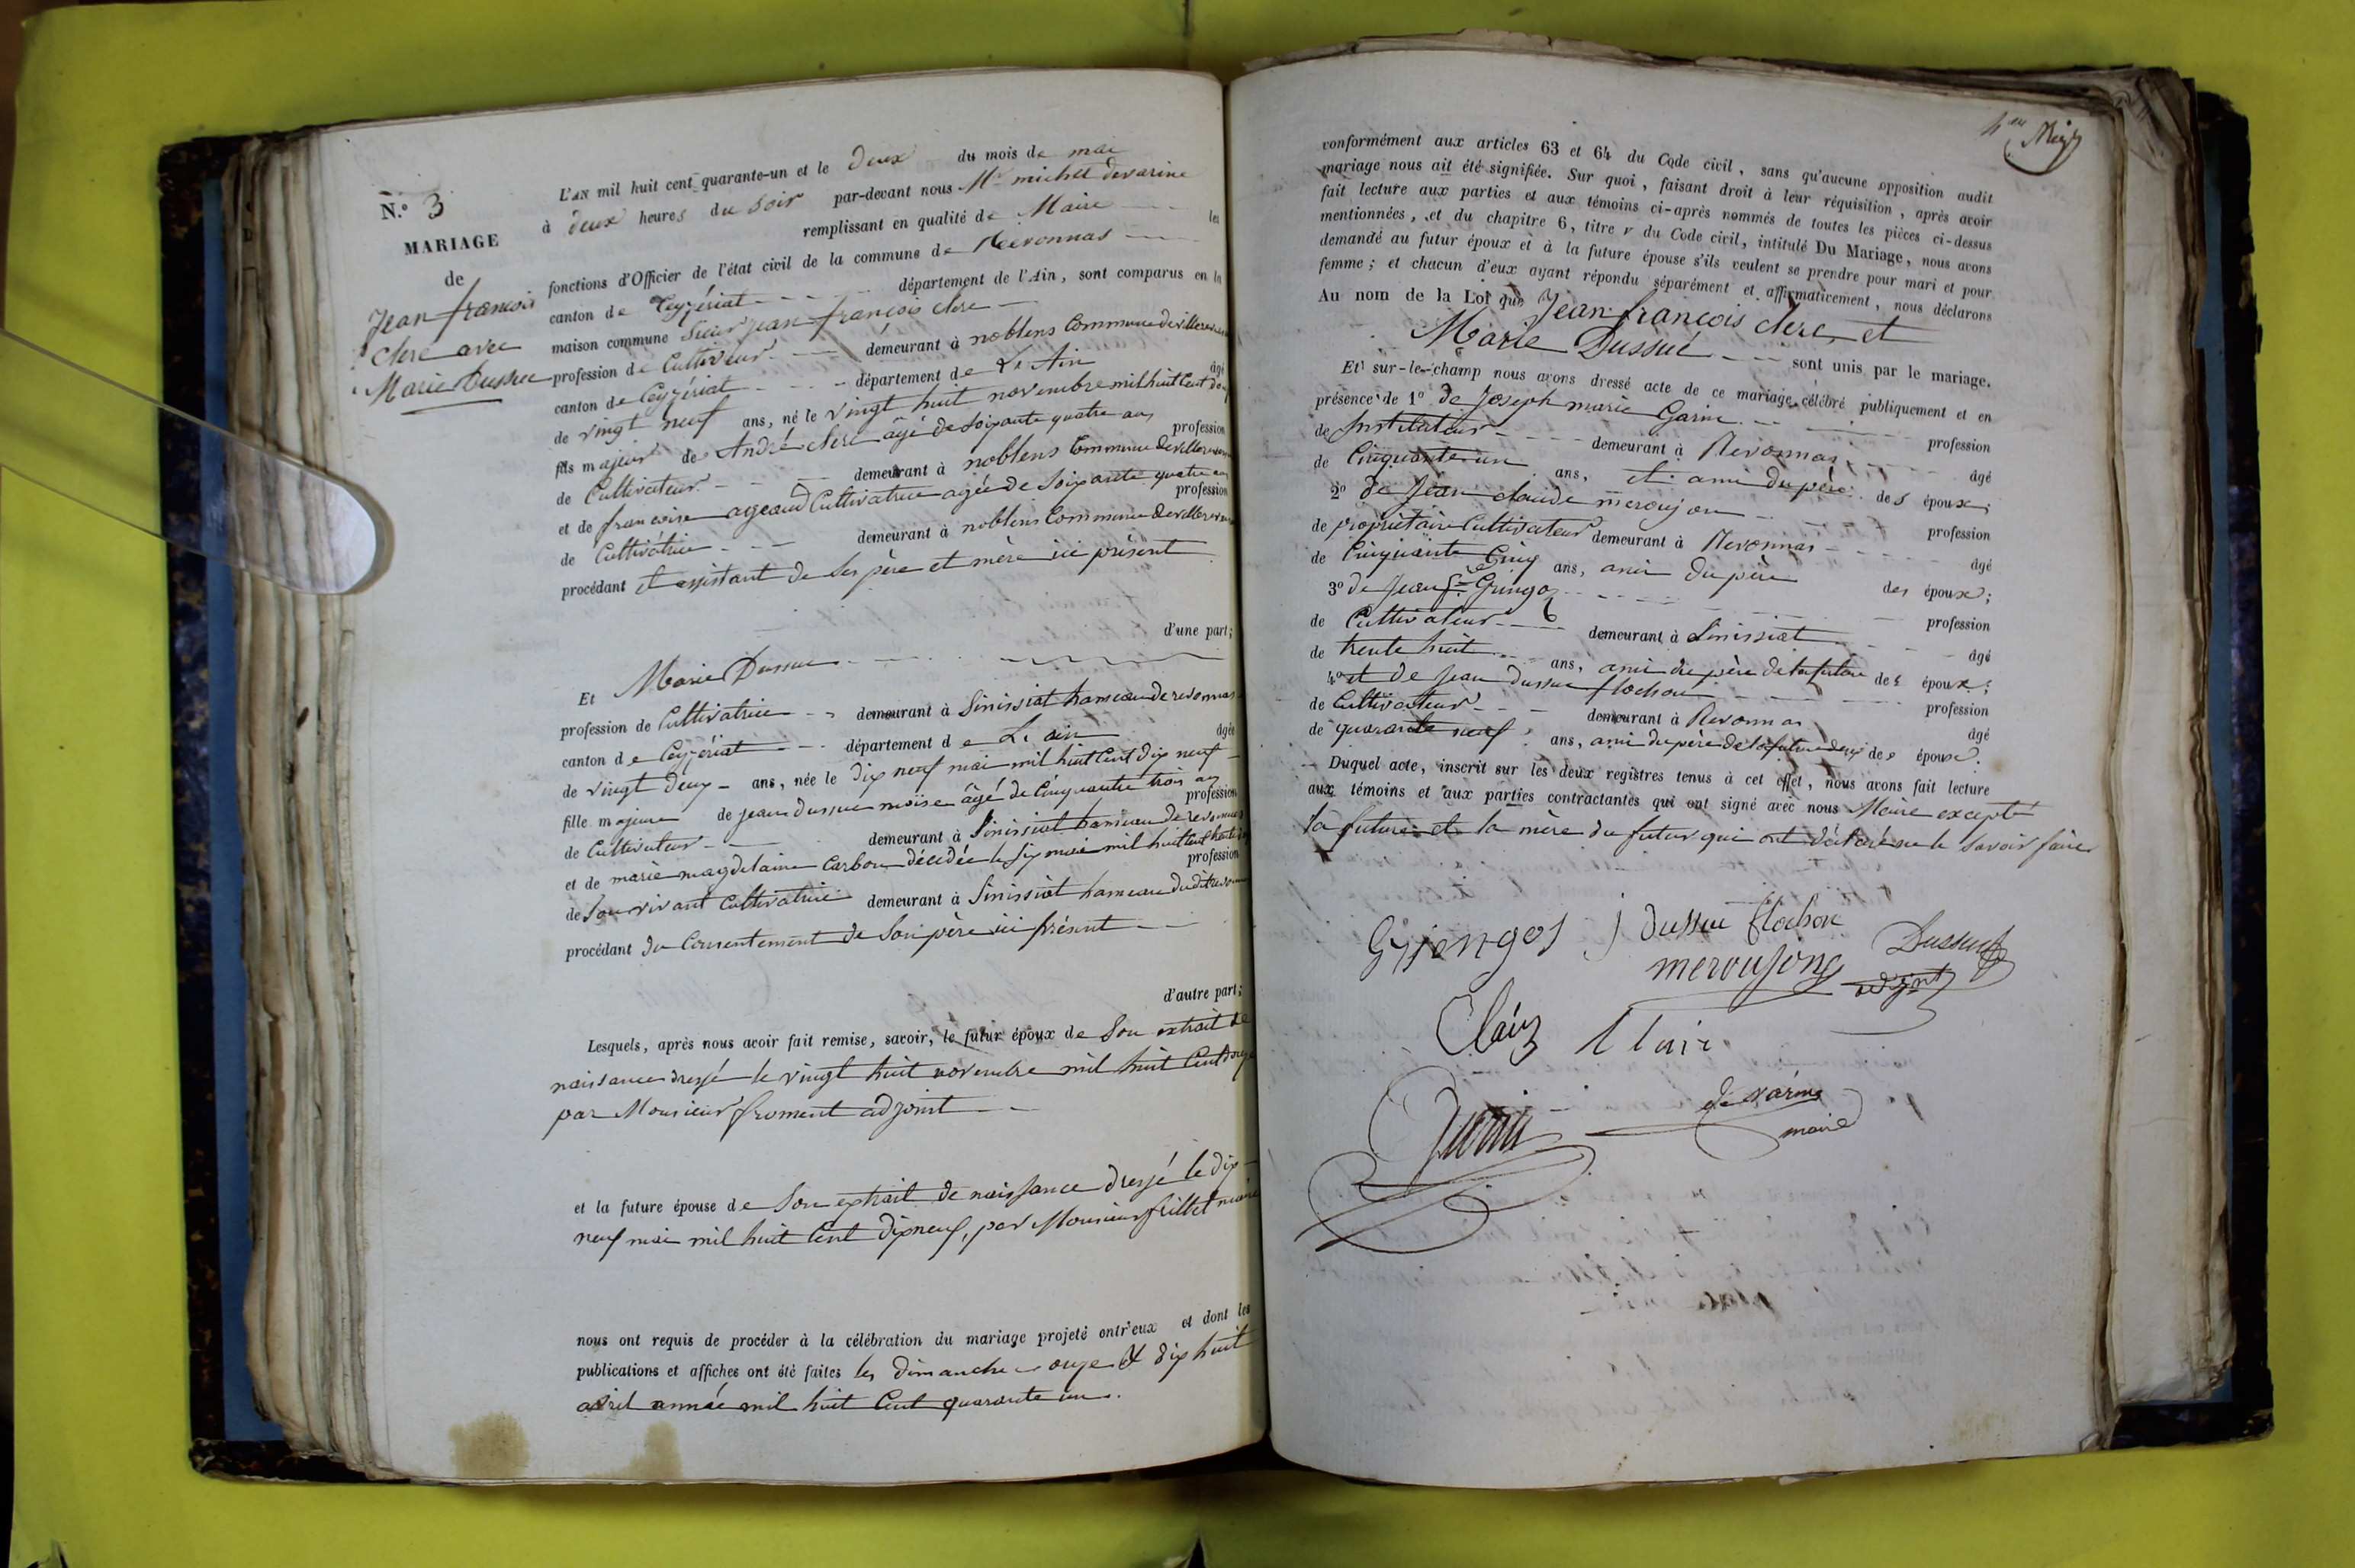 N.° 3
MARIAGE
de
Jean françois
Clerc avec
Marie Dussuc
L'AN mil huit cent quarante-un et le Deux du mois de mai
à deux heures du soir par-devant nous Mr michel devarine
remplissant en qualité de Maire les
fonctions d'Officier de l'état civil de la commune de Revonnas
canton de Ceyzériat département de l'Ain, sont comparus en la
maison commune Sieur jean françois clerc
profession de Cultiveur demeurant à noblens Commune de villereversure
canton de Ceyzériat département de L'Ain âgé
de vingt neuf ans, né le vingt huit novembre mil huit Cent douze
fils majeur de André clerc âgé de soixante quatre ans profession
de Cultivateur demeurant à noblens Commune de villereversure
et de francoise ageaud Cultivatrice agée de Soixante quatre ans profession
de Cultivatrice demeurant à noblens Commune de villereversure
procédant et assistant de Ses père et mère ici présent
d'une part;
Et Marie Dussuc
profession de Cultivatrice demeurant à Sinissiat hameau de revonnas
canton de Ceyzériat département de L'ain âgée
de vingt deux ans, née le dix neuf mai mil huit Cent dix neuf
fille majeure de jean dussuc moise âgé de Cinquante trois ans profession
de Cultivateur demeurant à Sinissiat hameau de revonnas
et de marie magdelaine Carbon décédée le six mai mil huit Cent profession
de Son vivant Cultivatrice demeurant à Sinissiat hameau dudit revonnas
procédant du Consentement de Son père ici présent
d'autre part;
Lesquels, après nous avoir fait remise, savoir, le futur époux de Son extrait de
naissance dressé le vingt huit novembre mil huit Cent douze
par Monsieur froment adjoint
et la future épouse de Son extrait de naissance dressé le dix
neuf mai mil huit Cent dix neuf, par Monsieur frillet maire
nous ont requis de procéder à la célébration du mariage projeté entr'eux et dont les
publications et affiches ont été faites les Dimanche onze & dix huit
avril année mil huit Cent quarante un.
conformément aux articles 63 et 64 du Code civil, sans qu'aucune opposition audit
mariage nous ait été signifiée. Sur quoi, faisant droit à leur réquisition, après avoir
fait lecture aux parties et aux témoins ci-après nommés de toutes les pièces ci-dessus
mentionnées, et du chapitre 6, titre v du Code civil, intitulé Du Mariage, nous avons
demandé au futur époux et à la future épouse s'ils veulent se prendre pour mari et pour
femme; et chacun d'eux ayant répondu séparément et affirmativement, nous déclarons
Au nom de la Loi que Jean françois clerc et
Marie Dussuc sont unis par le mariage.
Et sur-le-champ nous avons dressé acte de ce mariage célébré publiquement et en
présence de 1° de Joseph marie Garin profession
de Instituteur demeurant à Revonnas âgé
de Cinquante un ans, et ami du père des époux;
2° de Jean claude meroujon profession
de propriétaire Cultivateur demeurant à Revonnas âgé
de Cinquante Cinq ans, ami du père des époux;
3° de Jean Gringoz profession
de Cultivateur demeurant à Sinissiat âgé
de trente huit ans, ami du père de la future des époux;
4° et de Jean dussuc flochon profession
de Cultivateur demeurant à Revonnas âgé
de quarante neuf ans, ami du père de la future des époux.
Duquel acte, inscrit sur les deux registres tenus à cet effet, nous avons fait lecture
aux témoins et aux parties contractantes qui ont signé avec nous Maire excepté
la future et la mère du futur qui ont déclaré ne le savoir faire
J dussuc flochon
Dussuc
meroujong
adjnt
Clair
Clair
Garin
de varine
maire